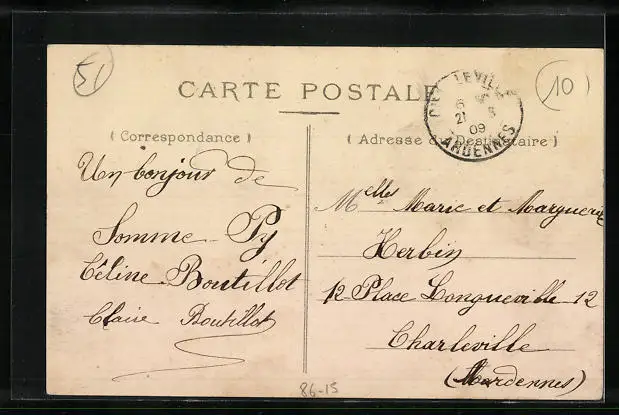 51
10
CARTE POSTALE
CHARLEVILLE
6
21 8
09
ARDENNES
( Correspondance )
( Adresse du Destinataire )
Un bonjour de
Somme-Py
Céline Boutillot
Claire Boutillot
Melles Marie et Marguerite
Herbin
12 Place Longueville 12
Charleville
(Ardennes)
86-15